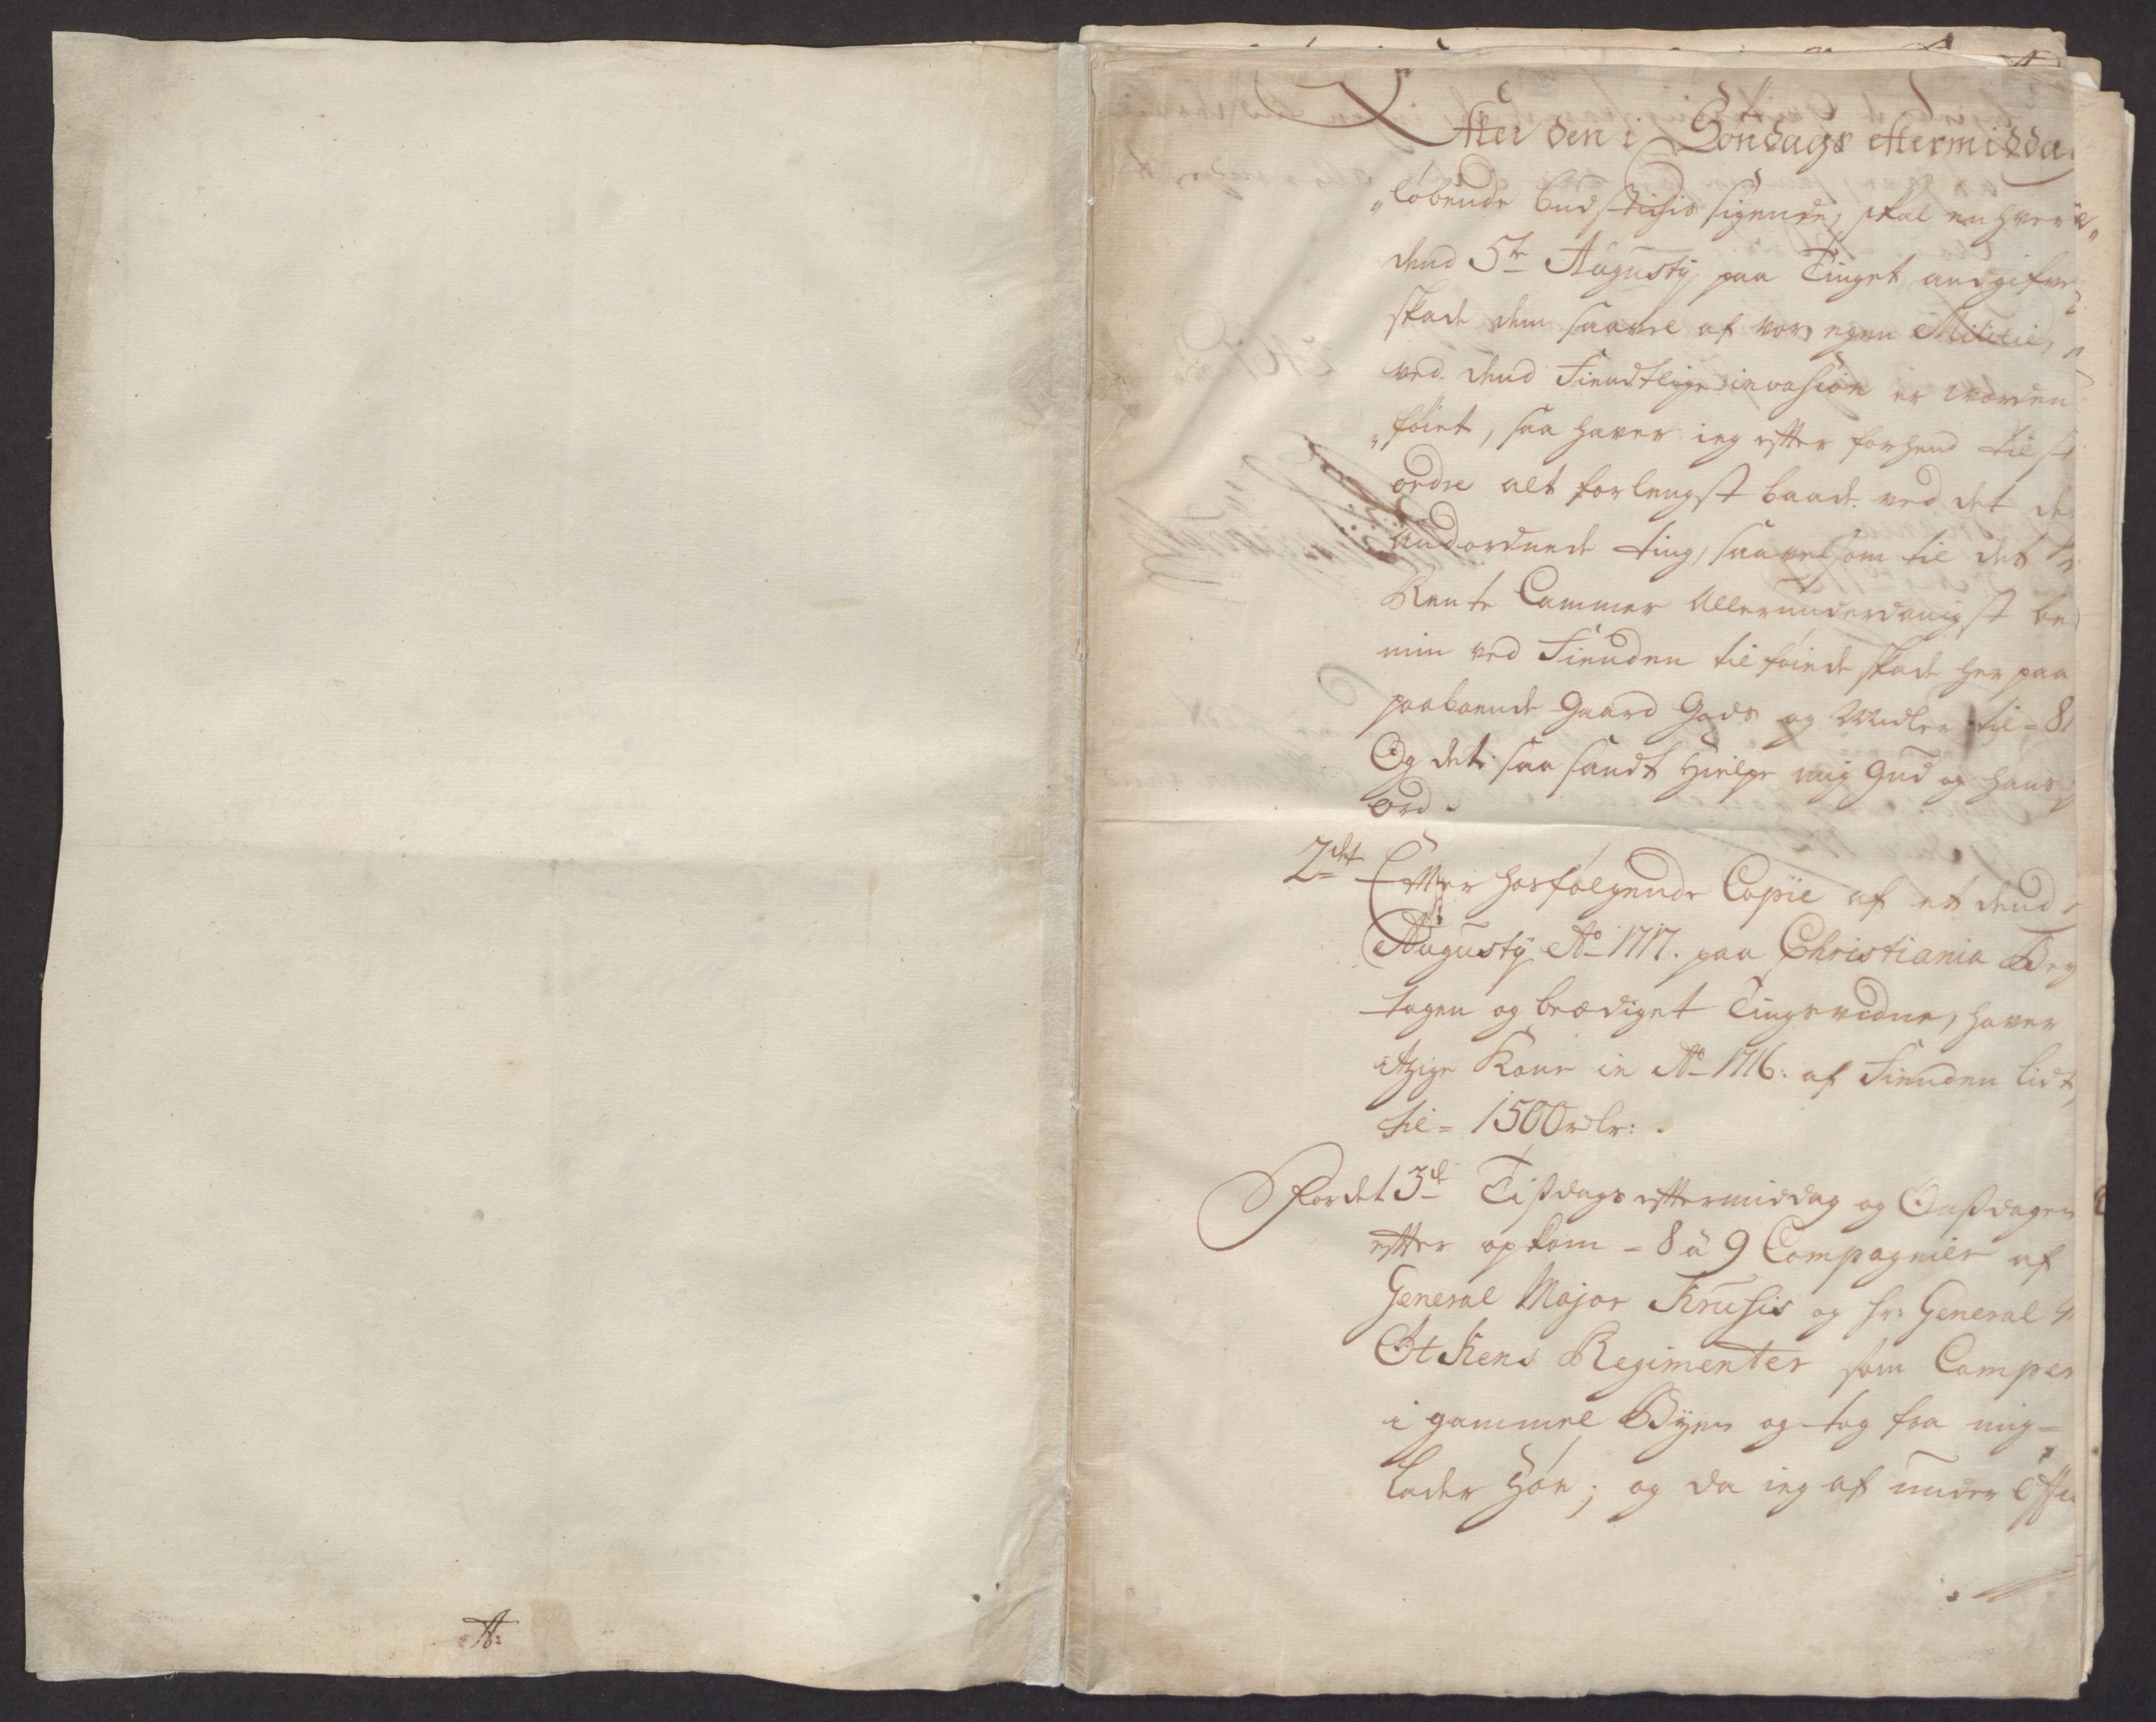 Efter den i Søndags eftermidda
„løbende budstichis sigende, skal enhver
dend 5te Augusty paa Tinget andgifve
skade dem saavel af vor egen Militie,
ved dend Fiendtlige invasion er worden
„føiet, saa haver ieg efter forhend til
ordre alt forlengst baade ved det de
andordnede ting, saavelsom til det
Rente Cammer Allerunderdanigst be
min ved Fienden tilføiede skade her paa
paaboende Gaard Gods og Midler til = 8
Og det saa sandt Hielpe mig Gud og hans
ord.
2det Efter hosfølgende Copie af et dend
Augusty Ao 1717. paa Christiania
tagen og beædiget Tingsvidne, haver
itzige Kone in Ao 1716: af Fienden lidt,
til = 1500 rdlr:.
For det 3de Tißdags eftermiddag og Onßdagen
efter opkom = 8 à 9 Compagnier af
General Major Krusis og hr: General
Øtkens Regimenter som Camper
i gammel Byen og tog fra mig =
lader Høe; og da ieg af under Offi
A: